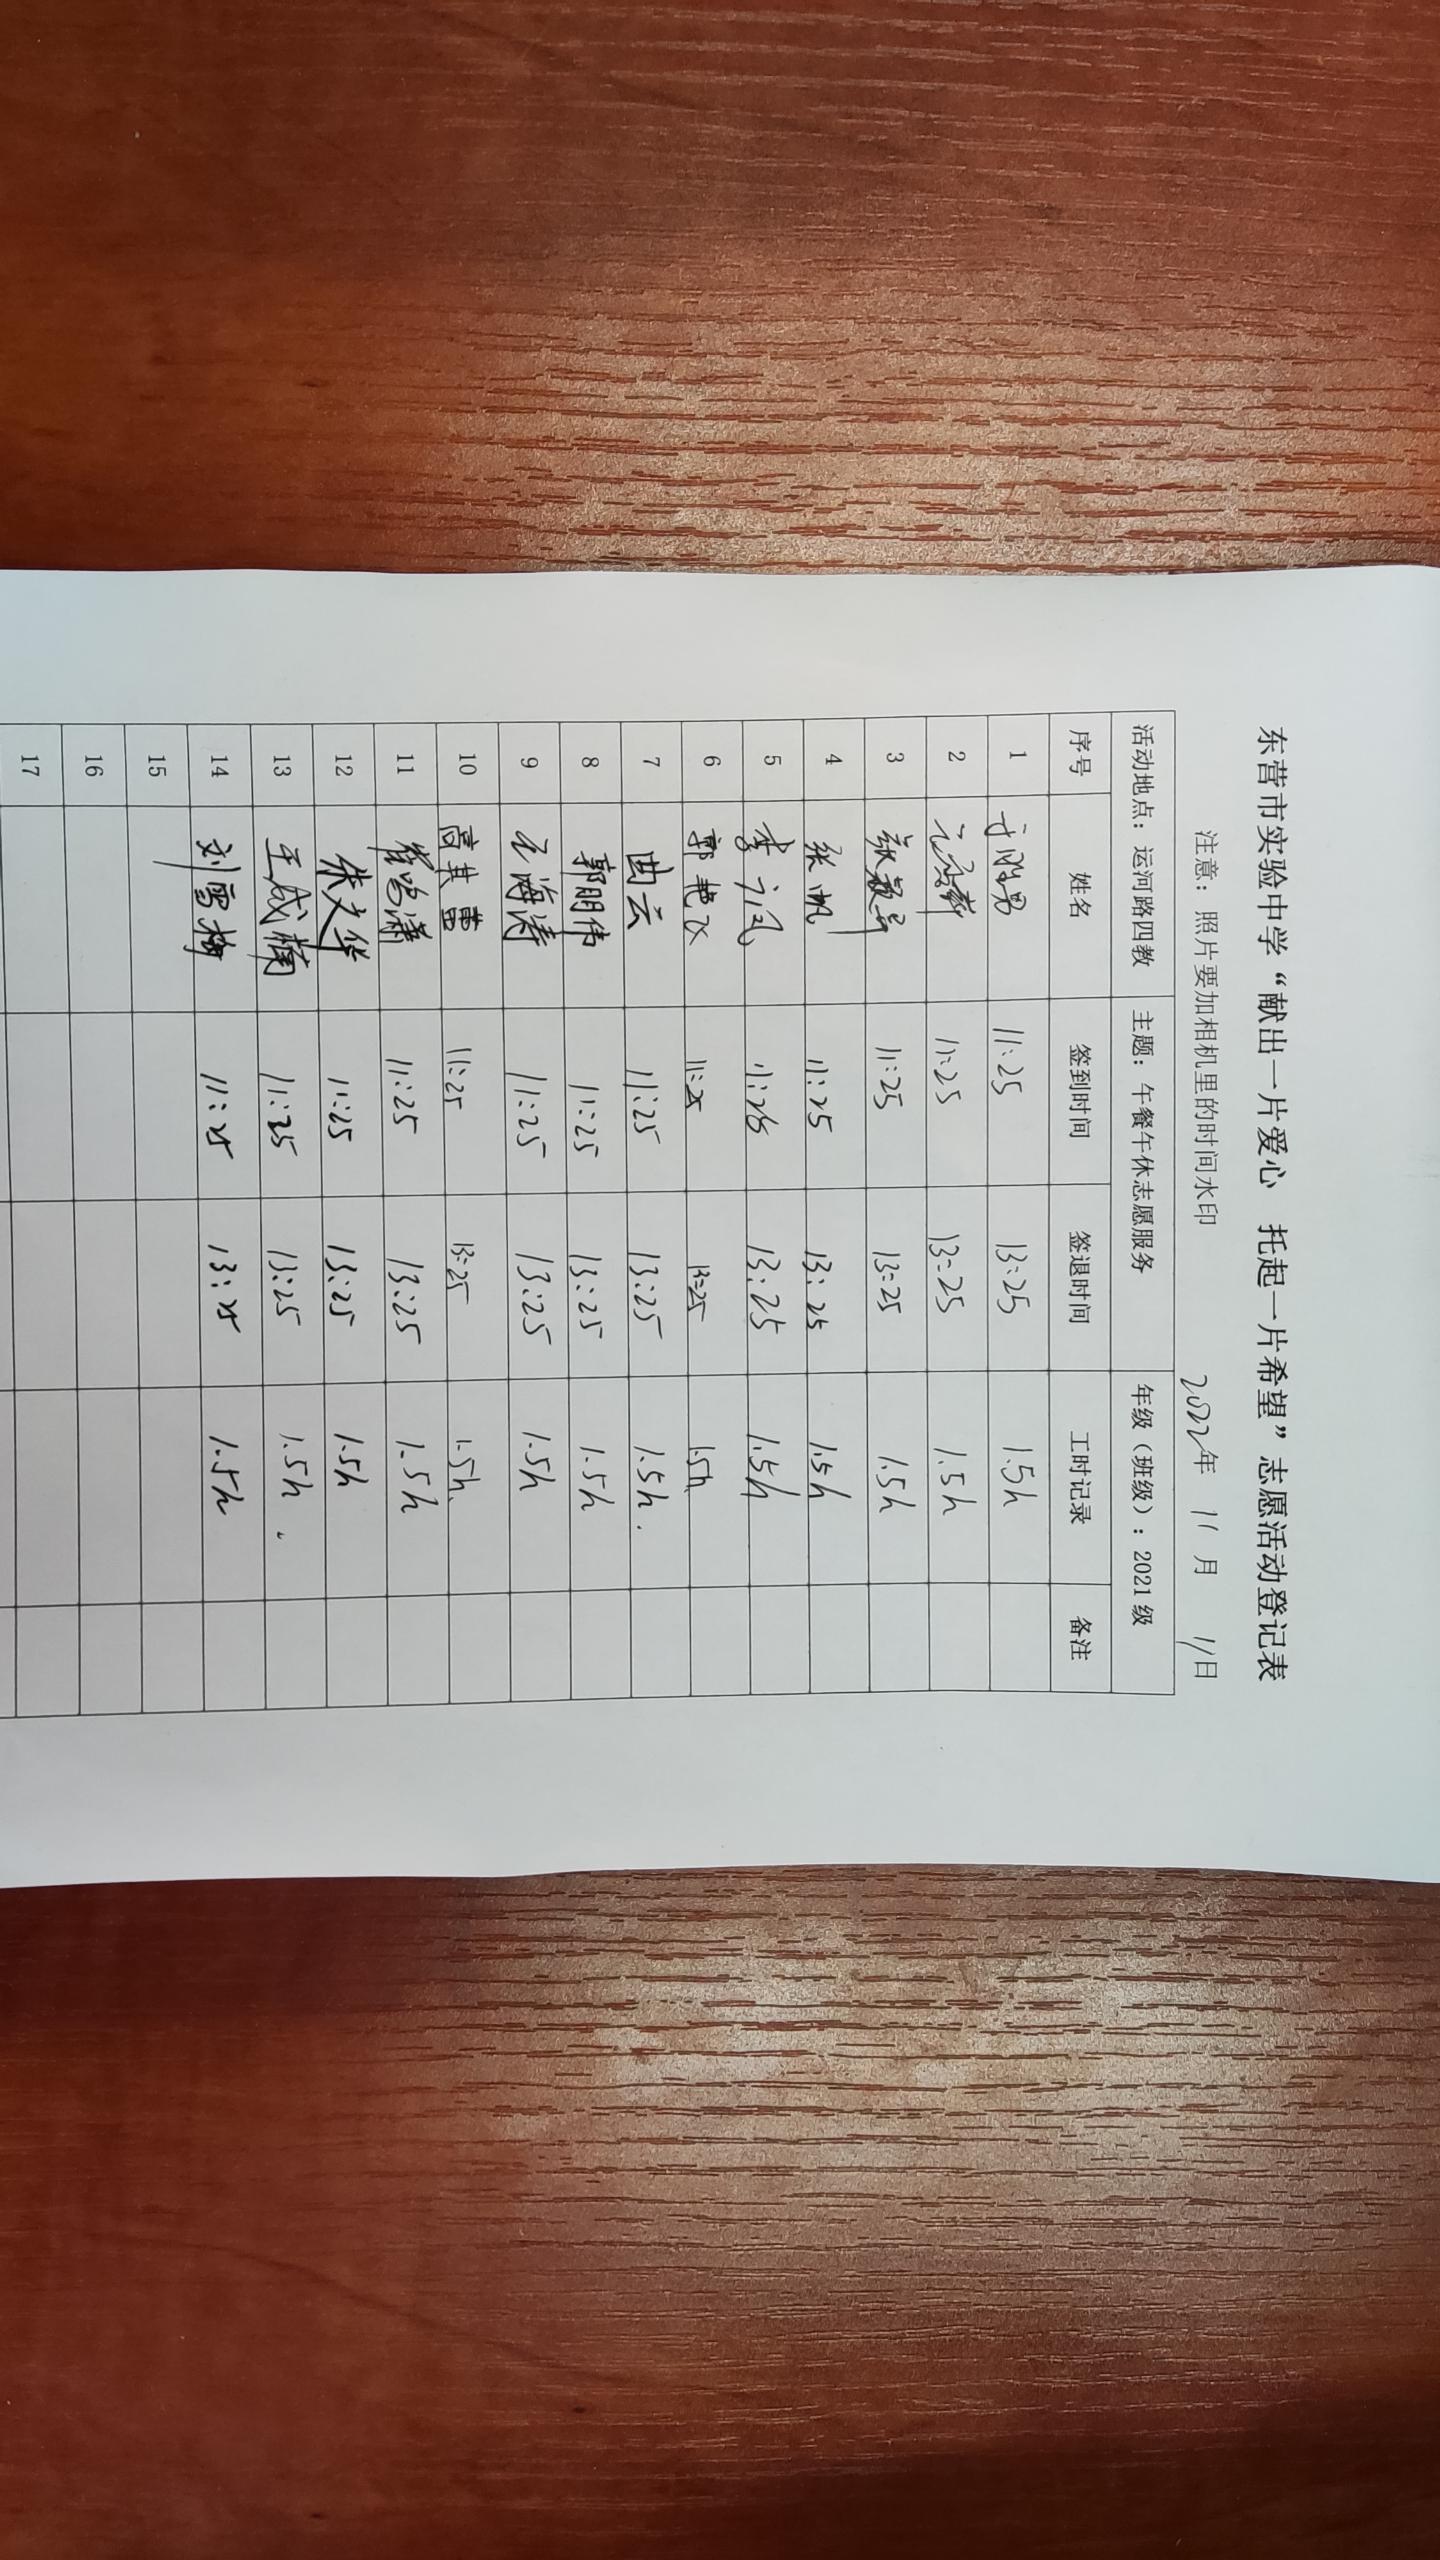 东营市实验中学“献出一片爱心 托起一片希望”志愿活动登记表
注意：照片要加相机里的时间水印 2022年 11月 11日
活动地点：运河路四教 主题：午餐午休志愿服务 年级（班级）：2021级
序号 姓名 签到时间 签退时间 工时记录 备注
1 11:25 13:25 1.5h
2 11:25 13:25 1.5h
3 11:25 13:25 1.5h
4 张帆 11:25 13:25 1.5h
5 11:25 13:25 1.5h
6 郭艳飞 11:25 13:25 1.5h
7 曲云 11:25 13:25 1.5h.
8 郭朋伟 11:25 13:25 1.5h
9 石海涛 11:25 13:25 1.5h
10 高其雷 11:25 13:25 1.5h.
11 11:25 13:25 1.5h
12 朱文华 11:25 13:25 1.5h
13 王成楠 11:25 13:25 1.5h.
14 刘雪梅 11:25 13:25 1.5h
15
16
17